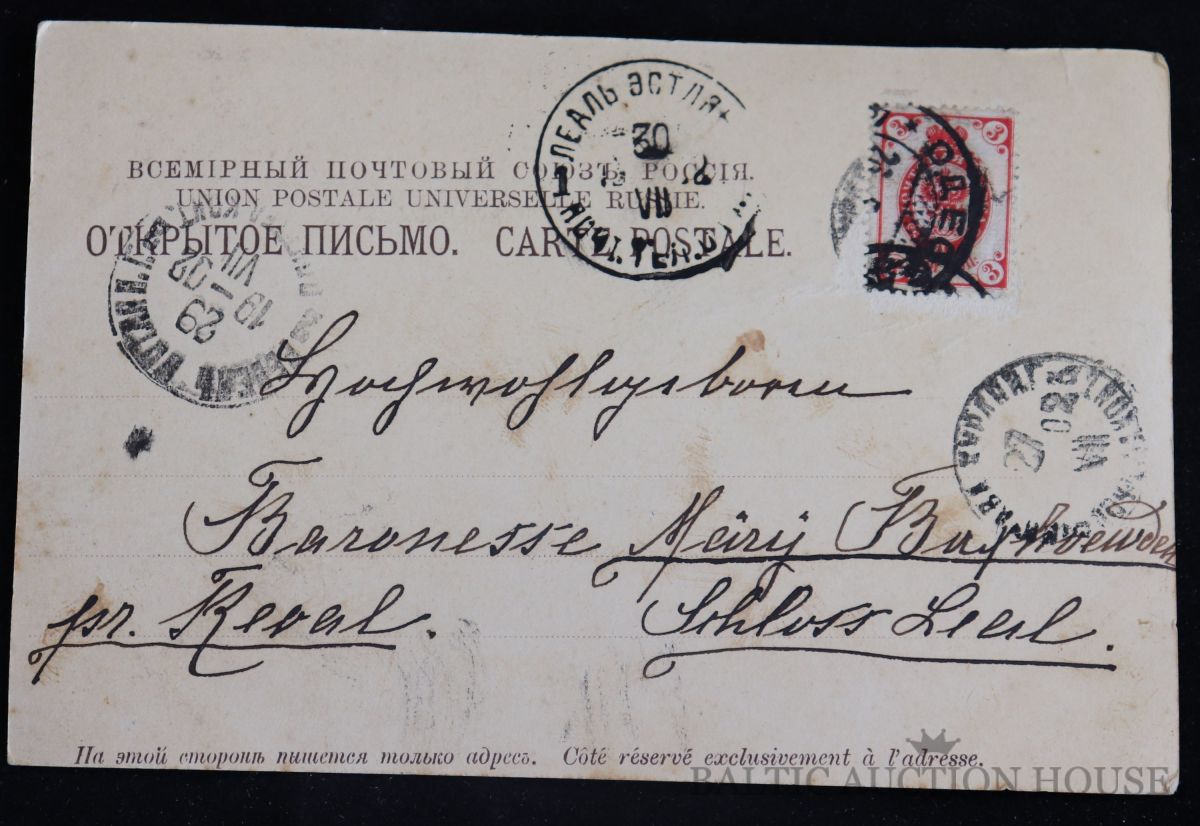 ВСЕМІРНЫЙ ПОЧТОВЫЙ СОЮЗЪ. РОССІЯ.
UNION POSTALE UNIVERSELLE RUSSIE.
ОТКРЫТОЕ ПИСЬМО. CARTE POSTALE.
ЛЕАЛЬ ЭСТЛЯ
30
VII
1
ПОЧТ. ТЕЛ.
ОДЕС
3
3
29
VII
19 02
27
VII
02
Hochwohlgeboren
Baronesse Märy Buxhoewden
pr. Reval. Schloss Leal.
На этой сторонѣ пишется только адресъ. Côté réservé exclusivement à l'adresse.
BALTIC AUCTION HOUSE